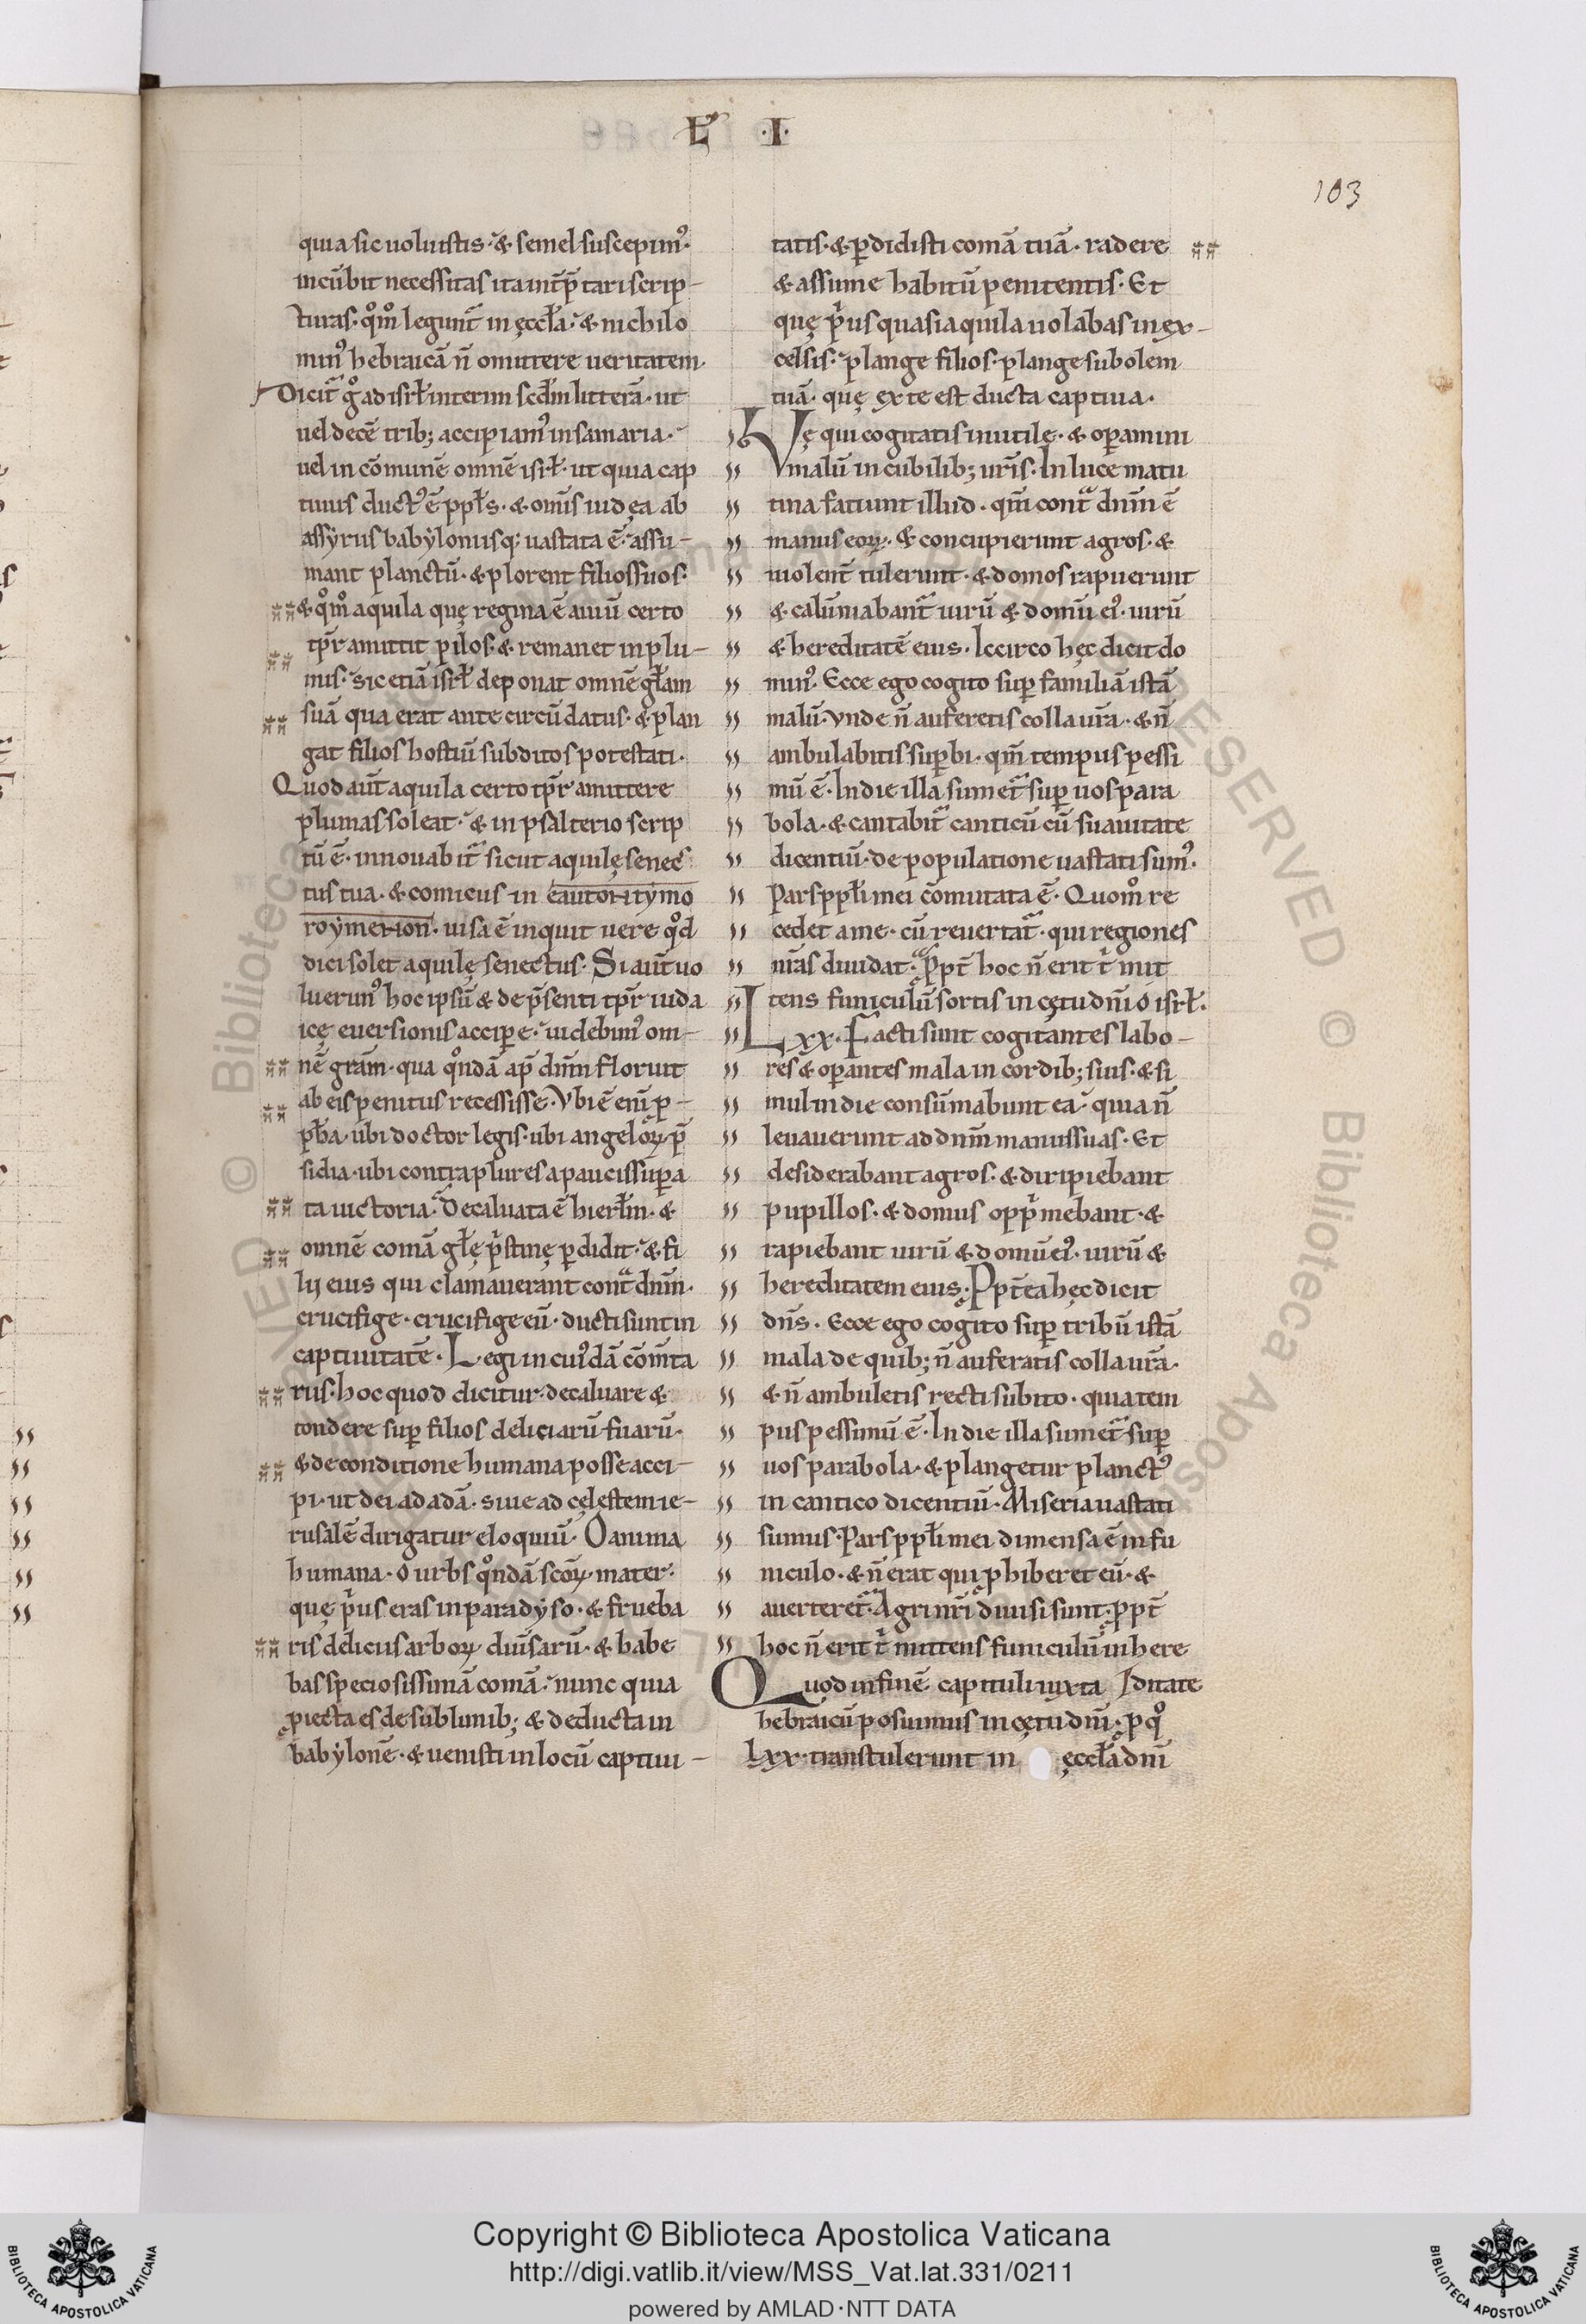 L' ·I·
103
quia sic uoluistis· & semel suscepim᷒·
incūbit necessitas ita int̄p̄tari scrip-
turas· qͦm̊ legunt᷑ in ęccl̄a· & nichilo
min᷒ hebraicā n̄ omittere ueritatem·
Dicit᷑ gͦ ad isrl̄ interim scd̄m litterā· ut
uel decē trib; accipiam᷒ in samaria·
uel in cōmunē omnē isrl̄· ut quia cap
tiuus duct᷒ ē ppl̄s· & om̄is iudęa ab
assyriis babyloniisq; uastata ē· assu-
mant planctū· & plorent filios suos·
& qͦm̊ aquila quę regina ē auiū certo
tp̄r amittit pilos· & remanet in plu-
mis· sic etiā isrl̄ deponat omnē gl̄am
suā qua erat ante circūdatus· & plan
gat filios hostiū subditos potestati·
Quod aut̄ aquila certo tp̄r amittere
plumas soleat· & in psalterio scrip
tū ē· innouabit᷑ sicut aquilę senec
tus tua· & comicus in eautoritymo
roymerion· uisa ē inquit uere qͦd
dici solet aquilę senectus· Si aut̄ uo
luerim᷒ hoc ipsū & de p̄senti tp̄r iuda
icę euersionis accipere· uidebim᷒ om-
nē gr̄am· qua qͦndā ap̄ dn̄m floruit
ab eis penitus recessisse· Vbi ē eni᷑ p-
ph̄a· ubi doctor legis· ubi angeloꝝ p̄
sidia· ubi contra plures a paucis supa
ta uictoria· Decaluata ē hierl̄m· &
omnē comā gl̄ę p̓stinę pdidit· & fi
lij eius qui clamauerant cont᷑ dn̄m·
crucifige· crucifige eū· ducti sunt in
captiuitatē· Legi in cui᷒dā cōm̄ta
rus· hoc quod dicitur· decaluare &
tondere sup filios deliciarū tuarū·
& de conditione humana posse acci-
pi· ut dei ad adā· siue ad cęlestem ie-
rusalē dirigatur eloquiū· O anima
humana· o urbs qͦndā sc̄oꝝ mater·
quę p̓us eras in paradyso· & frueba
ris deliciis arboꝝ diūsarū· & habe
bas speciosissimā comā· nunc quia
ꝓiecta es de sublimib; & deducta in
babylonē· & uenisti in locū captiui-
tatis· & pdidisti comā tuā· radere
& assume habitū penitentis· Et
quę p̓us quasi aquila uolabas in ex-
celsis· plange filios· plange subolem
tuā· quę ex te est ducta captiua·
Vę qui cogitatis inutile· & opamini
malū in cubilib; ur̄is· In luce matu
tina faciunt illud· qm̄ cont᷑ dn̄m ē
manus eoꝝ· & concupierunt agros· &
uiolent̄ tulerunt· & domos rapuerunt
& calūniabant᷑ uirū & domū ei᷒· uirū
& hereditatē eius· Iccirco hęc dicit do
min᷒· Ecce ego cogito sup familiā istā
malū· Vnde n̄ auferetis colla ur̄a· & n̄
ambulabitis supbi· qm̄ tempus pessi
mū ē· In die illa sumet᷑ sup uos para
bola· & cantabit᷑ canticū cū suauitate
dicentiū· de populatione uastati sum᷒·
Pars ppl̄i mei cōmutata ē· Quom̊ re
cedet a me· cū reuertat᷑· qui regiones
nr̄as diuidat· ꝓpt̄ hoc n̄ erit t̓ mit
tens funiculū sortis in cętu dn̄i ó isrl̄·
Lxx· Facti sunt cogitantes labo-
res & opantes mala in cordib; suis· & si
mul in die consūmabunt ea· quia n̄
leuauerunt ad dn̄m manus suas· Et
desiderabant agros· & diripiebant
pupillos· & domus opp̓mebant· &
rapiebant uirū & domū ei᷒· uirū &
hereditatem eius· Ꝓpt̄ea hęc dicit
dn̄s· Ecce ego cogito sup tribū istā
mala de quib; n̄ auferatis colla ur̄a·
& n̄ ambuletis recti subito· quia tem
pus pessimū ē· In die illa sumet᷑ sup
uos parabola· & plangetur planct᷒
in cantico dicentiū· Miseria uastati
sumus· Pars ppl̄i mei dimensa ē in fu
niculo· & n̄ erat qui ꝓhiberet eū· &
auerteret᷑· Agri nr̄i diuisi sunt· ꝓpt̄
hoc n̄ erit t̓ mittens funiculū in here
Quod in finē capituli iuxta /ditate
hebraicū posuimus in cętu dn̄i· ꝓ qͦ
Lxx· transtulerunt in ęccl̄a dn̄i
Copyright © Biblioteca Apostolica Vaticana
http://digi.vatlib.it/view/MSS_Vat.lat.331/0211
powered by AMLAD·NTT DATA
BIBLIOTECA APOSTOLICA VATICANA
BIBLIOTECA APOSTOLICA VATICANA